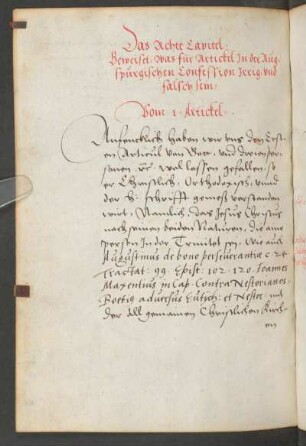 Das Achte Capittel
Beweiset was für Artickel In der Aug,
spürgischen Confession Irrig und
falsch sein.
Vom 1 Artickel.
Anfencklich haben wir uns den Erst,
en Articul von Gott, und drei en per,
sonen &c wol lassen gefallen, so
er Christlich, Orthodoxisch, unnd
der h. schrifft gemess verstanden
wirt, Namlich, das Jesus Christus
nach seinen beiden Naturen, die ane
person In der Trinitet sey, Wie auch
Augustinus de bono perseverantiæ c 24
Tractat: 99. Epist: 102. 120. Joannes
Maxentius in Cap. Contra Nestorianos.
Boetig adversus Eutich: et Nestor: und
der allgemainen Christlichen Kirch,
en